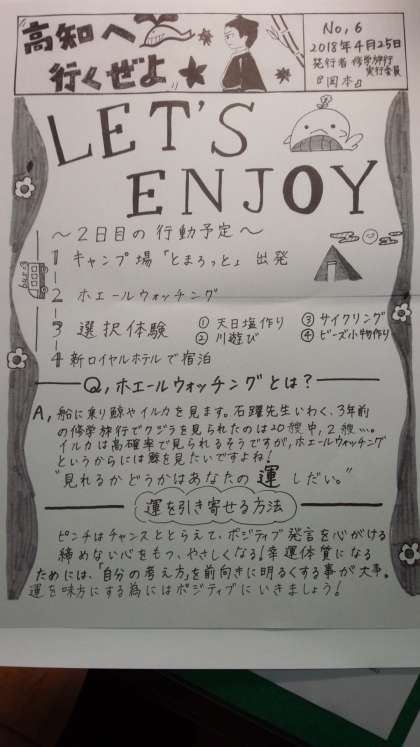 高知へ
行くぜよ
No,6
2018年4月25日
発行者 修学旅行
実行委員
『岡本』
LET'S
ENJOY
～2日目の行動予定～
1 キャンプ場「とまろっと」出発
2 ホエールウォッチング
3 選択体験 ①天日塩作り ③サイクリング
②川遊び ④ビーズ小物作り
4 新ロイヤルホテルで宿泊
Q,ホエールウォッチングとは?
A, 船に乗り鯨やイルカを見ます。石躍先生いわく、3年前
の修学旅行でクジラを見られたのは20艘中、2艘…。
イルカは高確率で見られるそうですが、ホエールウォッチング
というからには鯨を見たいですよね!
"見れるかどうかはあなたの運しだい。"
運を引き寄せる方法
ピンチはチャンスととらえて、ポジティブ発言を心がける
締めない心をもつ、やさしくなる!幸運体質になる
ためには、「自分の考え方」を前向きに明るくする事が大事。
運を味方にする為にはポジティブにいきましょう!